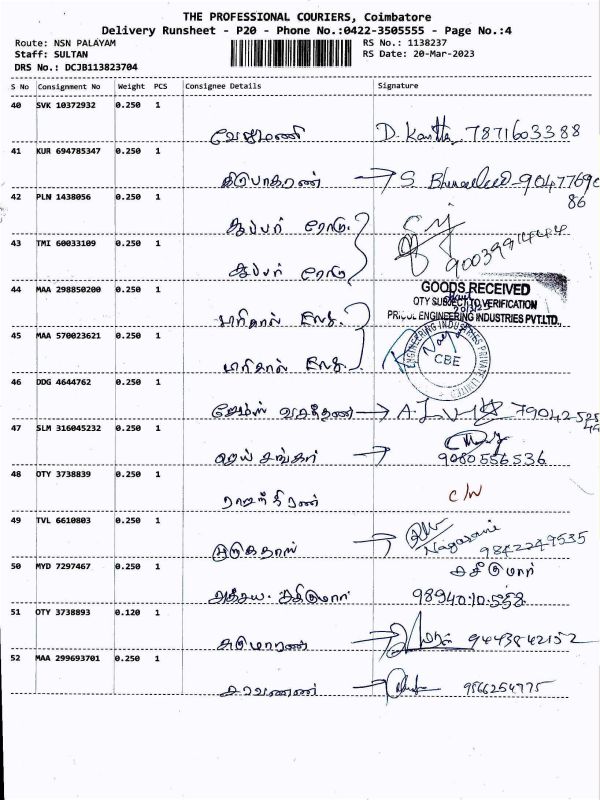 THE PROFESSIONAL COURIERS, Coimbatore
Delivery Runsheet - P20 - Phone No.:0422-3505555 - Page No.:4
Route: NSN PALAYAM RS No.: 1138237
Staff: SULTAN RS Date: 20-Mar-2023
DRS No.: DCJB113823704
S No Consignment No Weight PCS Consignee Details Signature
40 SVK 10372932 0.250 1
வேலுமணி D. Kantha 7871603388
41 KUR 694785347 0.250 1
திபாகரண் S. 90477690
86
42 PLN 1438056 0.250 1
சூப்பர் ரோடு.
43 TMI 60033109 0.250 1
சூப்பர் ரோடு 9003991444
44 MAA 298850200 0.250 1
GOODS RECEIVED
QTY SUBJECT TO VERIFICATION
PRICOL ENGINEERING INDUSTRIES PVT.LTD.,
45 MAA 570023621 0.250 1
ENGINEERING INDUSTRIES PRIVATE LIMITED
CBE
46 DDG 4644762 0.250 1
47 SLM 316045232 0.250 1
ஜெய் சங்கர் 9080556536
48 OTY 3738839 0.250 1
ராஜகிரண் C/N
49 TVL 6610803 0.250 1
Nagarani 9842249535
50 MYD 7297467 0.250 1
சசிகுமார்
அக்சய. சசிகுமார் 9894010558
51 OTY 3738893 0.120 1
சுகுமாரண் 9443842152
52 MAA 299693701 0.250 1
சரவணண் 9566254775